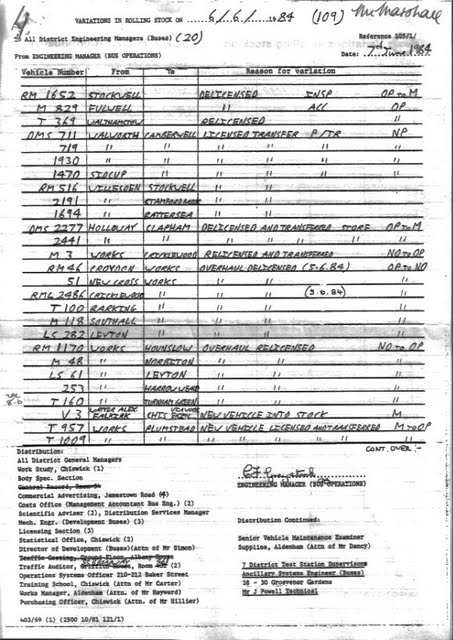 VARIATIONS IN ROLLING STOCK ON 6/6/1984 (109) Mr Marshall
To All District Engineering Managers (Buses) (20) Reference 105/1/
From ENGINEERING MANAGER (BUS OPERATIONS) Date: 7th June 1984
Vehicle Number From To Reason for variation
RM 1652 STOCKWELL DELICENSED INSP OP to M
M 829 FULWELL " ACC OP
T 369 WALTHAMSTOW RELICENSED "
DMS 711 WALWORTH CAMBERWELL LICENSED TRANSFER P/TR NP
719 " " " " " "
1930 " " " " " "
1470 SIDCUP " " " " "
RM 516 WILLESDEN STOCKWELL " " " "
2191 " STAMFORD BROOK " " " "
1694 " BATTERSEA " " " "
DMS 2277 HOLLOWAY CLAPHAM DELICENSED AND TRANSFERRED STORE OP to M
2441 " " " " " " "
M 3 WORKS CRICKLEWOOD RELICENSED AND TRANSFERRED NO to OP
RM 46 CROYDON WORKS OVERHAUL DELICENSED (5.6.84) OP to NO
51 NEW CROSS WORKS " " "
RML 2486 CRICKLEWOOD " " " (5.6.84) "
T 100 BARKING " " " "
M 118 SOUTHALL " " " "
LS 282 LEYTON " " " "
RM 1170 WORKS HOUNSLOW OVERHAUL RELICENSED NO to OP
M 48 " NORBITON " " "
LS 61 " LEYTON " " "
253 " HARROW WEALD " " "
T 160 " TURNHAM GREEN " " "
V 3 WALTER ALEX FALKIRK CHIS EXPL NEW VEHICLE INTO STOCK M
T 957 WORKS PLUMSTEAD NEW VEHICLE LICENSED AND TRANSFERRED M to OP
T 1009 " " " " " " "
CONT. OVER :-
Distribution:
All District General Managers
Work Study, Chiswick (1)
Body Spec. Section
ENGINEERING MANAGER (BUS OPERATIONS)
Commercial Advertising, Jamestown Road (4)
Costs Office (Management Accountant Bus Eng.) (2)
Scientific Adviser (2), Distribution Services Manager
Mech. Engr. (Development Buses) (3)
Distribution Continued:
Licensing Section (3)
Statistical Office, Chiswick (2)
Director of Development (Buses)(Attn of Mr Simon)
Senior Vehicle Maintenance Examiner
Supplies, Aldenham (Attn of Mr Dancy)
Traffic Auditor, Room (2)
Operations Systems Officer 210-212 Baker Street
Training School, Chiswick (Attn. of Mr Carter)
Works Manager, Aldenham (Attn. of Mr Hayward)
Purchasing Officer, Chiswick (Attn of Mr Hillier)
7 District Test Station Supervisors
Ancillary Systems Engineer (Buses)
28 - 30 Grosvenor Gardens
Mr J Powell Technical
403/69 (1) (2500 10/81 121/1)